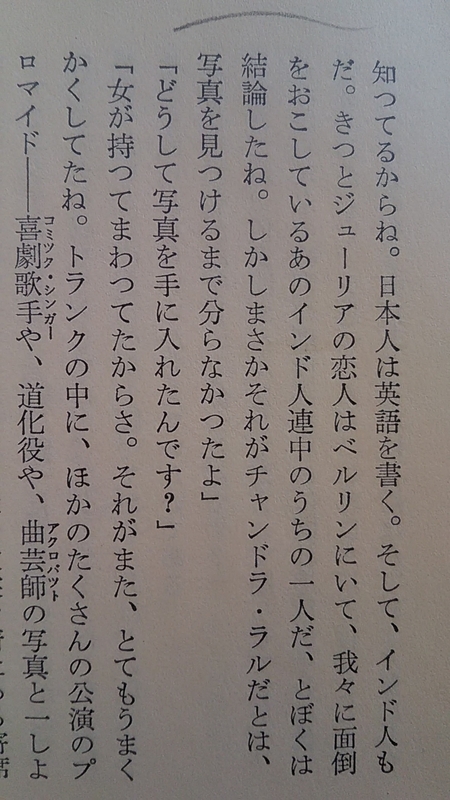 知つてるからね。日本人は英語を書く。そして、インド人も
だ。きつとジューリアの恋人はベルリンにいて、我々に面倒
をおこしているあのインド人連中のうちの一人だ、とぼくは
結論したね。しかしまさかそれがチャンドラ・ラルだとは、
写真を見つけるまで分らなかつたよ」
「どうして写真を手に入れたんです?」
「女が持つてまわつてたからさ。それがまた、とてもうまく
かくしてたね。トランクの中に、ほかのたくさんの公演のプ
ロマイド――喜劇歌手や、道化役や、曲芸師の写真と一しよ
コミツク・シンガー
アクロバツト